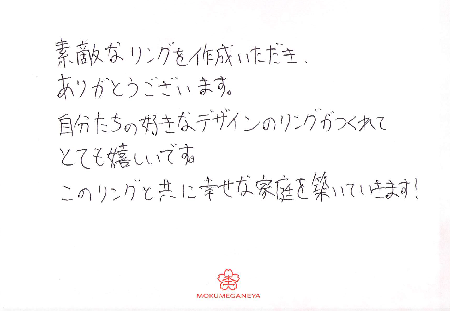 素敵なリングを作成いただき、
ありがとうございます。
自分たちの好きなデザインのリングがつくれて
とても嬉しいです。
このリングと共に幸せな家庭を築いていきます!
MOKUMEGANEYA